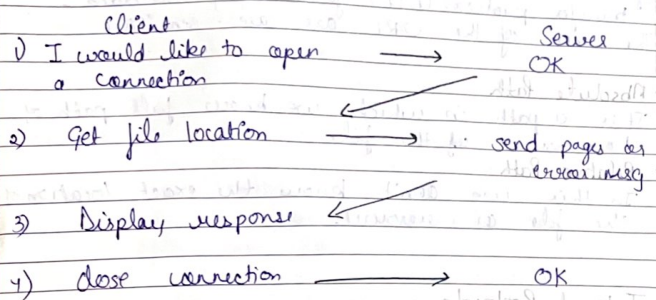 Client
Server
1) I would like to open → OK
a connection
2) Get file location → send pages or
error msg
3) Display response
4) close connection → OK